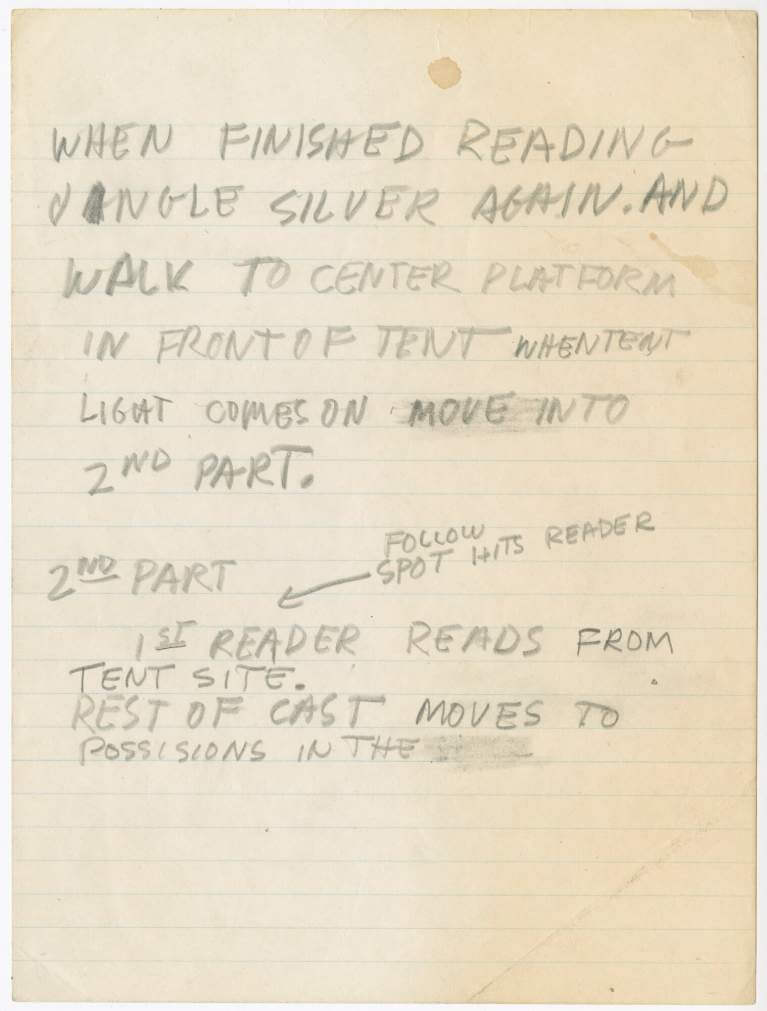 WHEN FINISHED READING
JINGLE SILVER AGAIN. AND
WALK TO CENTER PLATFORM
IN FRONT OF TENT WHEN TENT
LIGHT COMES ON MOVE INTO
2ND PART.
FOLLOW
SPOT HITS READER
2ND PART
1ST READER READS FROM
TENT SITE.
REST OF CAST MOVES TO
POSSISIONS IN THE